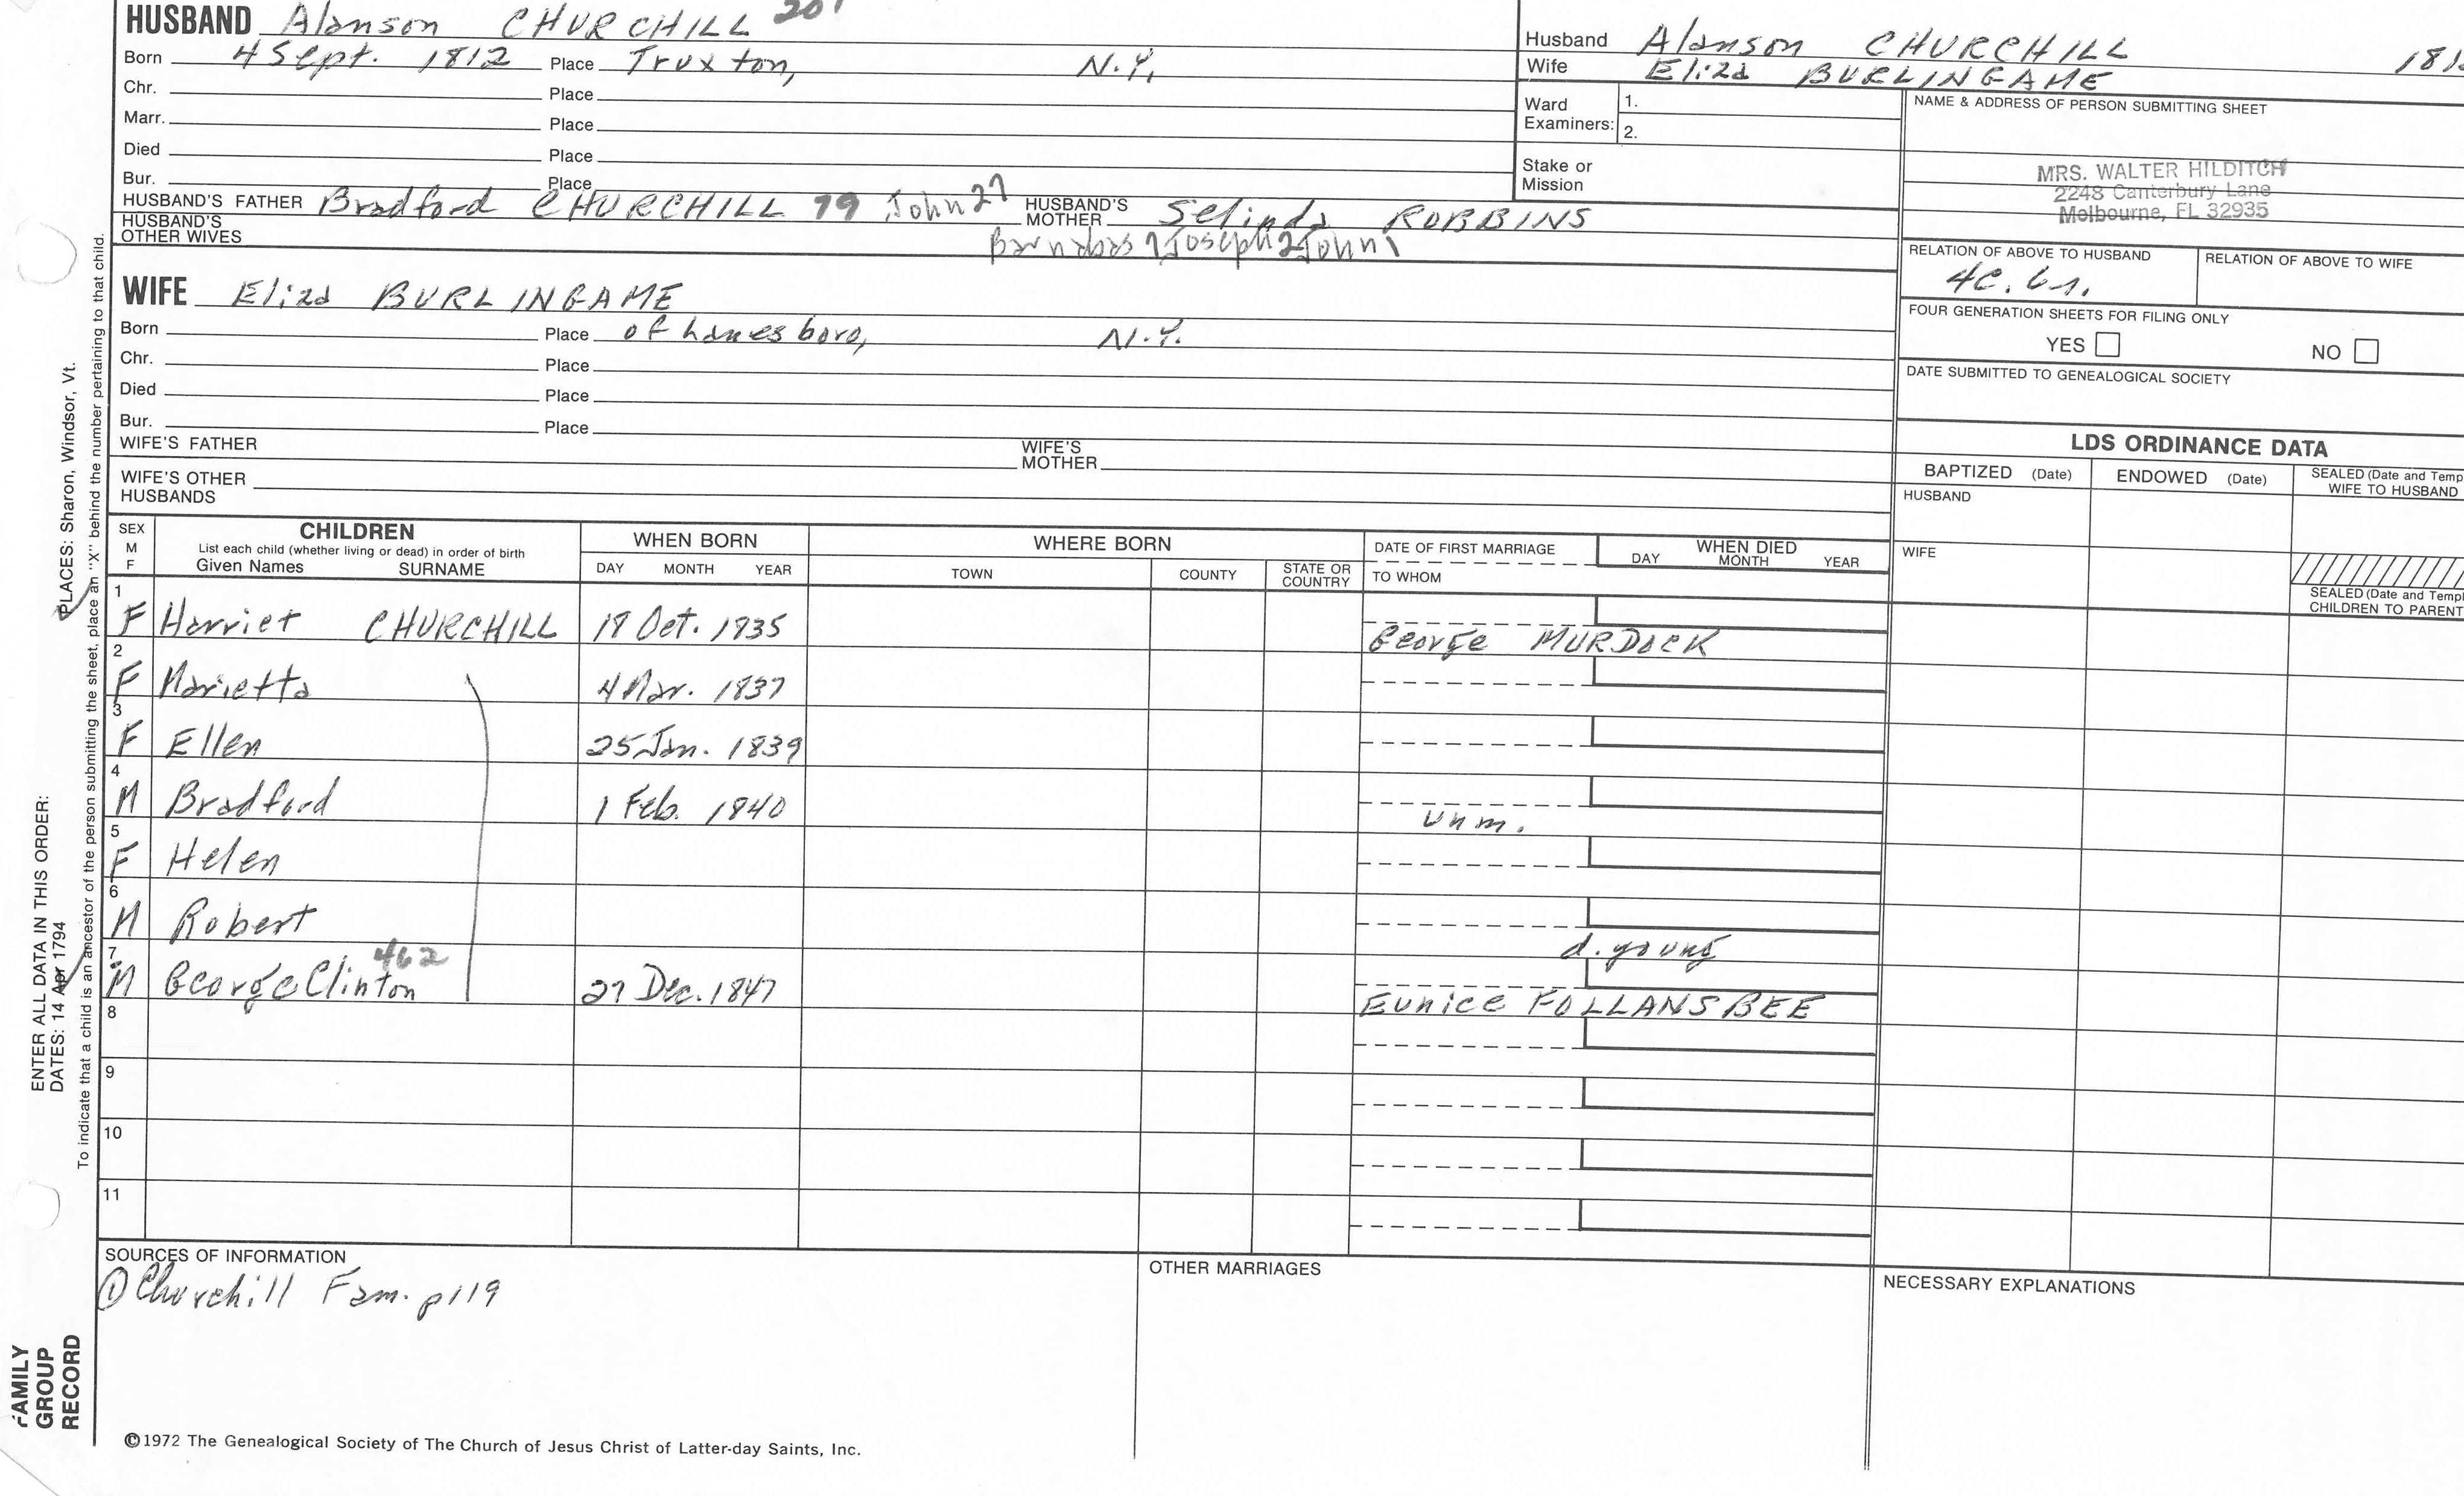 HUSBAND Alanson CHURCHILL 201
Born 4 Sept. 1812 Place Truxton, N.Y.
Chr. Place
Marr. Place
Died Place
Bur. Place
HUSBAND'S FATHER Bradford CHURCHILL 79 John27 HUSBAND'S MOTHER Selinda ROBBINS
HUSBAND'S OTHER WIVES Barnabas 7 Joseph2 John1
WIFE Eliza BURLINGAME
Born Place of Lanesboro, N.Y.
Chr. Place
Died Place
Bur. Place
WIFE'S FATHER WIFE'S MOTHER
WIFE'S OTHER HUSBANDS
Husband Alanson CHURCHILL
Wife Eliza BURLINGAME
Ward Examiners: 1.
2.
Stake or Mission
NAME & ADDRESS OF PERSON SUBMITTING SHEET
MRS. WALTER HILDITCH
2248 Canterbury Lane
Melbourne, FL 32935
RELATION OF ABOVE TO HUSBAND RELATION OF ABOVE TO WIFE
FOUR GENERATION SHEETS FOR FILING ONLY
YES NO
DATE SUBMITTED TO GENEALOGICAL SOCIETY
LDS ORDINANCE DATA
BAPTIZED (Date) ENDOWED (Date) SEALED (Date and Temp
WIFE TO HUSBAND
HUSBAND
WIFE
SEALED (Date and Templ
CHILDREN TO PARENT
SEX M F CHILDREN WHEN BORN WHERE BORN DATE OF FIRST MARRIAGE WHEN DIED
List each child (whether living or dead) in order of birth
Given Names SURNAME DAY MONTH YEAR TOWN COUNTY STATE OR COUNTRY TO WHOM DAY MONTH YEAR
1 F Harriet CHURCHILL 18 Oct. 1835 George MURDOCK
2 F Marietta 4 Mar. 1837
3 F Ellen 25 Jan. 1839
4 M Bradford 1 Feb. 1840 unm.
5 F Helen
6 M Robert d. young
7 M George Clinton 462 27 Dec. 1847 Eunice FOLLANSBEE
8
9
10
11
SOURCES OF INFORMATION
① Churchill Fam. p119
OTHER MARRIAGES
NECESSARY EXPLANATIONS
©1972 The Genealogical Society of The Church of Jesus Christ of Latter-day Saints, Inc.
FAMILY GROUP RECORD
ENTER ALL DATA IN THIS ORDER:
DATES: 14 Apr 1794
PLACES: Sharon, Windsor, Vt.
To indicate that a child is an ancestor of the person submitting the sheet, place an "X" behind the number pertaining to that child.